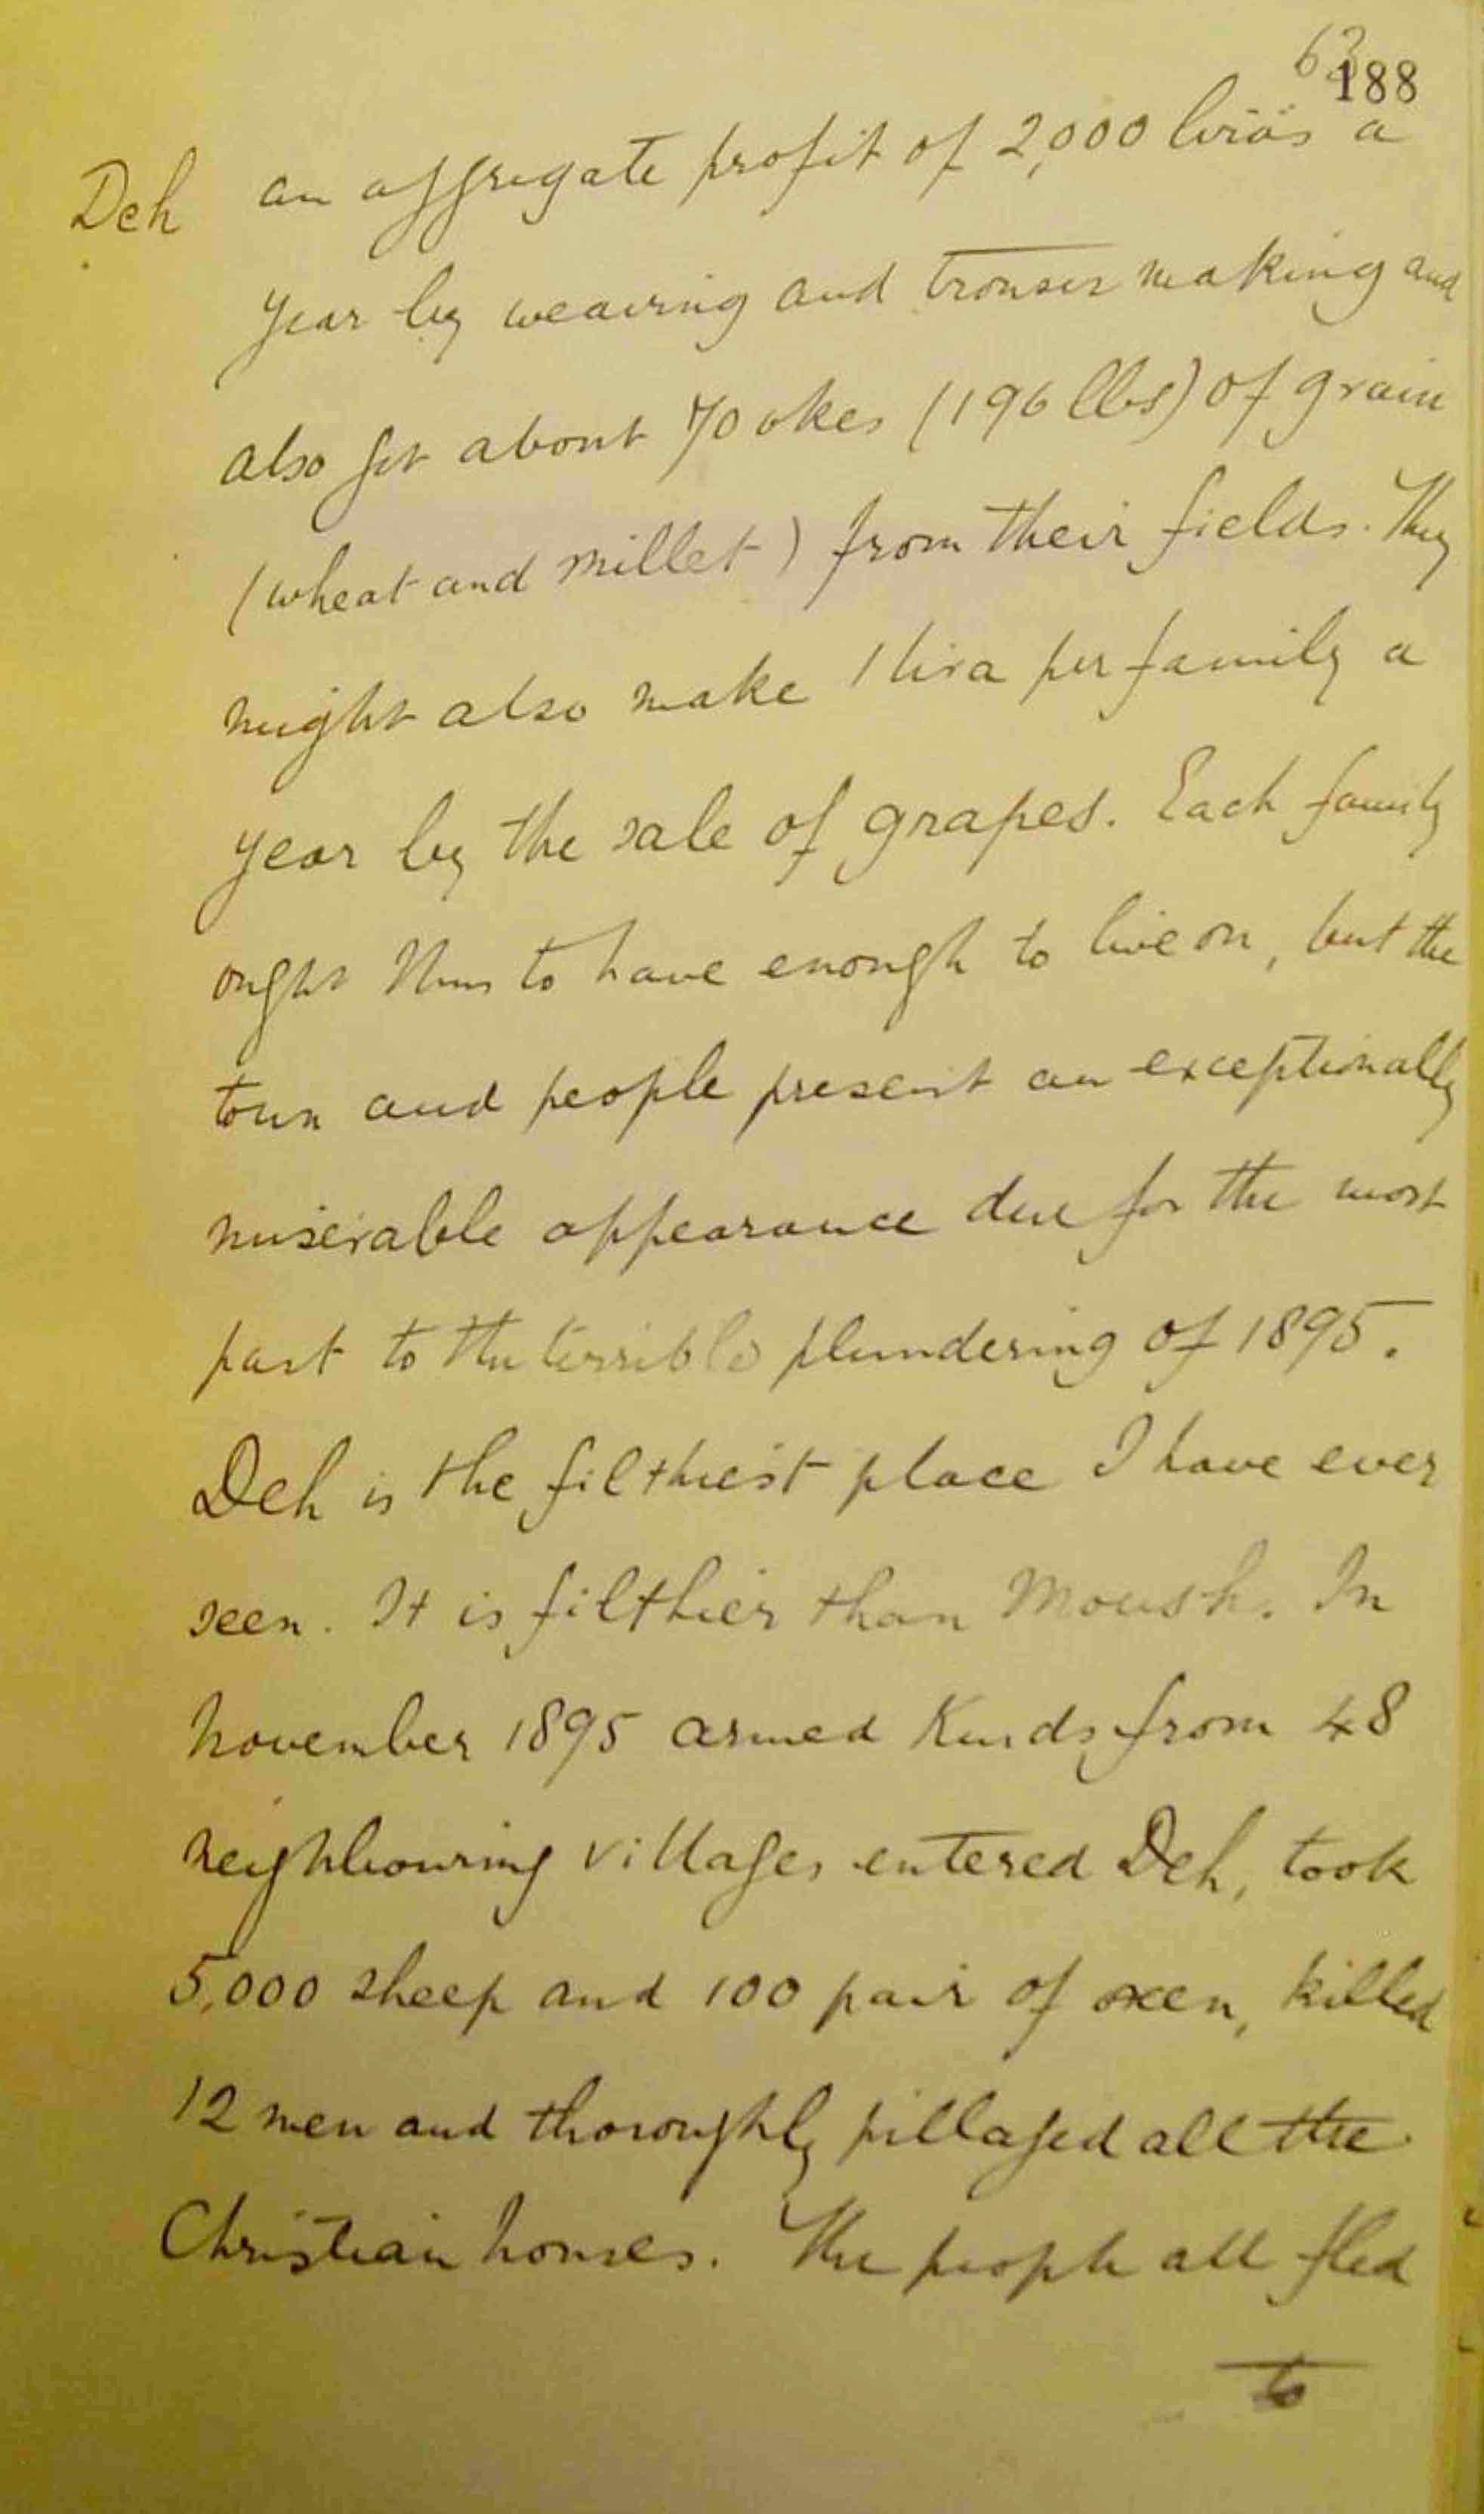 63
188
Deh an aggregate profit of 2,000 liras a
year by weaving and trouser making and
also get about 70 okes (196 lbs) of grain
(wheat and millet) from their fields. They
might also make 1 lira per family a
year by the sale of grapes. Each family
ought thus to have enough to live on, but the
town and people present an exceptionally
miserable appearance due for the most
part to the terrible plundering of 1895.
Deh is the filthiest place I have ever
seen. It is filthier than Moush. In
November 1895 armed Kurds from 48
neighbouring villages entered Deh, took
5,000 sheep and 100 pair of oxen, killed
12 men and thoroughly pillaged all the
Christian houses. The people all fled
to